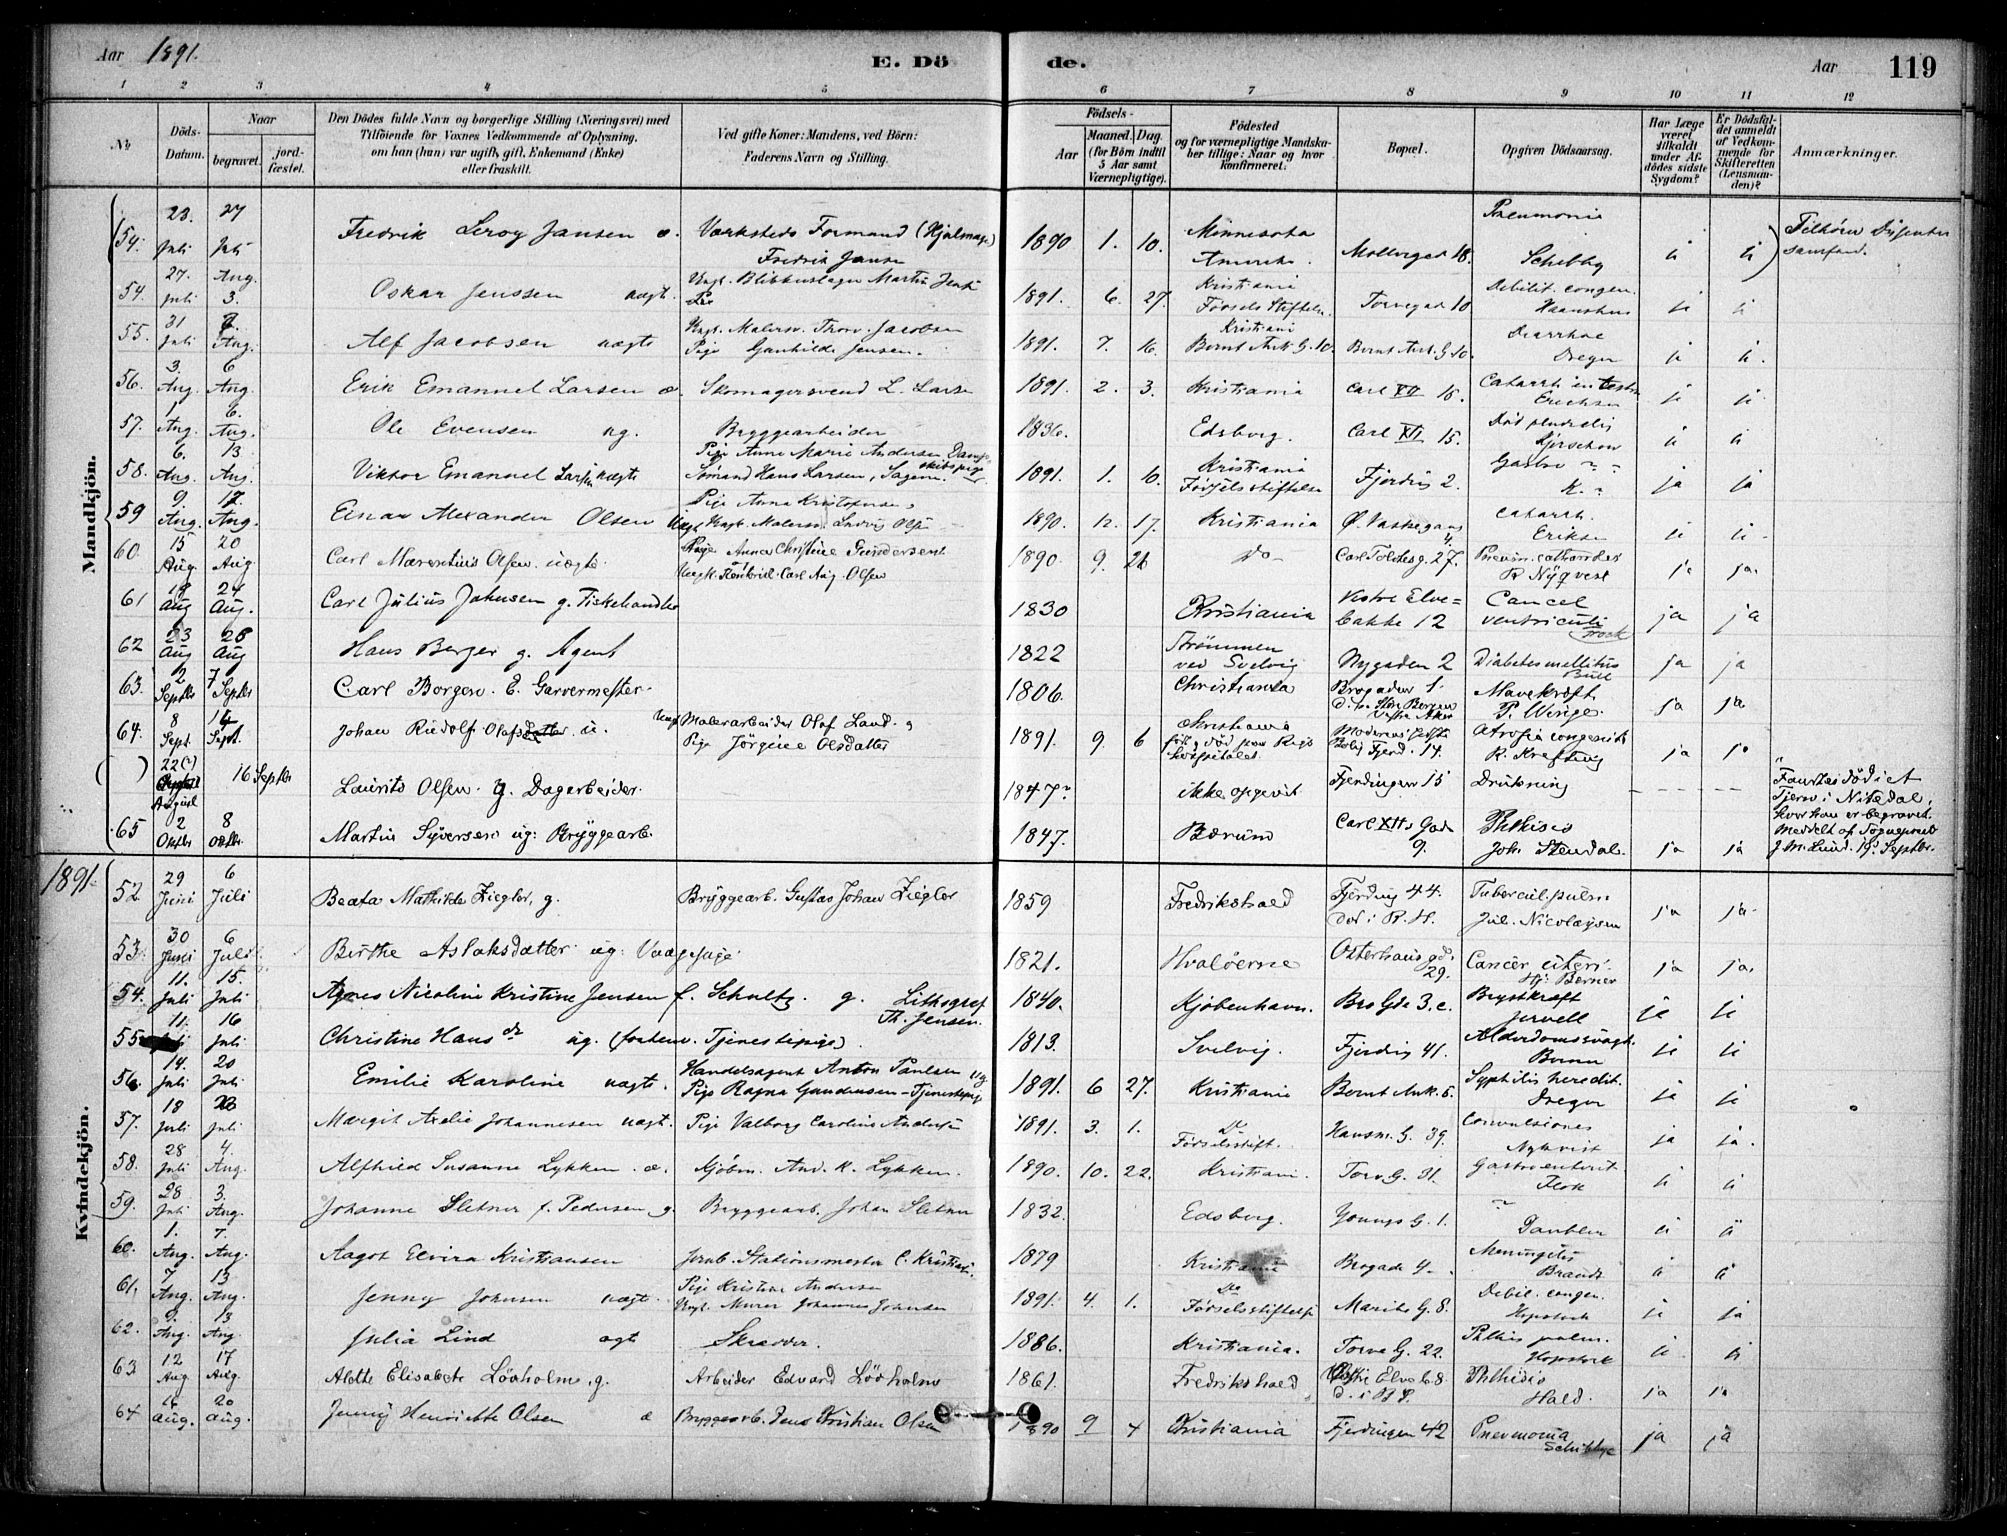 Aar 1891.
E. Dö
de.
Aar
119
1 2 3 4 5 6 7 8 9 10 11 12
№
Döds-Datum.
Naar
begravet.
jord-fæstet.
Den Dödes fulde Navn og borgerlige Stilling (Næringsvei) med
Tilföiende for Voxnes Vedkommende af Oplysning,
om han (hun) var ugift, gift, Enkemand (Enke)
eller fraskilt.
Ved gifte Koner: Mandens, ved Börn:
Faderens Navn og Stilling.
Födsels-
Aar
Maaned. Dag.
(for Börn indtil
5 Aar samt
Værnepligtige).
Födested
og for værnepligtige Mandska-
ber tillige: Naar og hvor
konfirmeret.
Bopæl.
Opgiven Dödsaarsag.
Har Læge
været
tilkaldt
under Af-
dödes sidste
Sygdom?
Er Dödsfal-
det anmeldt
af Vedkom-
mende for
Skifteretten
(Lensman-
den)?
Anmærkninger.
Mandkjön.
54. 23. Juli 27 Juli Fredrik Leroy Jansen æ. Værksteds Formand (Hjulmager) Fredrik Jansen 1890 1. 10. Minnesota Amerika. Møllergad 18. Pneumonia Schibby ja ja Tilhører Dissenter samfund.
54. 27. Juli Aug. 3. Oskar Jenssen uægt. Ungk. Blikkenslager Martin 1891. 6. 27. Kristiania Fødsels Stiftelse. Torvegad 10 Debilit. congen. ja ja
55. 31 Juli Aug. Alf Jacobsen uægte Ungk. Malersv. Thorv. Jacobsen Pige Gunhilde Jensen. 1891. 7. 16. Kristiani Bernt Ank. G. 10. Bernt Ank. G 10. Diarrhoe Dreyer ja ja.
56. 3. Aug. 6 Aug. Erik Emanuel Larsen æ. Skomagersvend L. Larsen 1891 2. 3. Kristiania Carl XII 16. Catarrh. intestin Erichsen ja ja
57. 1 Aug. 6. Aug. Ole Evensen ug. Bryggearbeider 1836. Edsberg. Carl XII 15. Død pludselig ja ja
58. 6. Aug. 13 Aug. Viktor Emanuel Larsen uægte Pige Anne Marie Andersen Sømand Hans Larsen, Sagene. 1891. 1. 10. Kristiania Fødselsstiftelse Fjerding 2. Gastro ja ja
59 9. Aug. 12. Aug. Einar Alexander Olsen Uægt Pige Anna Kristofersen Ungk. Malersv. Ludvig Olsen 1890. 12. 17. Kristiania Ø. Vaskegang 4. Catarrh. Eriksen ja ja
60. 15 Aug. 20 Aug. Carl Marentius Olsen. uægte. Pige Anna Christine Gundersen Ungk. Carl Aug. Olsen 1890 9. 26 Do Carl Toldbg. 27. Pneum. catarrhalis R Nyqvest ja ja.
61 18 Aug 24 Aug. Carl Julius Johnsen g. Fiskehandler 1830 Christiania Vestre Elvebakke 12 Cancer ventriculi ja ja
62 23 Aug 28 Aug Hans Berger g. Agent 1822 Strømmen ved Svelvig Nygaden 2 Diabetes mellitus Bull ja ja
63. 2 Septbr 7 Septbr Carl Borgen. E. Garvermester. 1806. Christiania Brogaden 1. Mavekræft P. Winge. ja ja
64. 8 Sept. 14 Sept. Johan Rudolf Olafs u. Ungk Malerarbeider Olaf Land. Pige Jørgine Olsdatter 1891. 9. 6 Christiania født og død paa Rigshospitalet Fjerd. 14. Atrofia congenita R. Krefting ja ja
( ) 22(?) August 16 Septbr Laurits Olsen. g. Dagarbeider. 1847? ikke opgivet. Fjerdingen 15 Drukning Fantes død i et Tjern i Nitedal, hvor han er begravet. Meddelt af Sognepræst J. M. Lund. 19 Septbr.
65 2 Oktbr 8 Oktbr. Martin Syversen ug: Bryggearb. 1847. Bærum Carl XIIs Gade 9. Phthisis Joh. Stendal. ja ja
1891.
Kvindekjön.
52. 29 Juni 6 Juli Beata Mathilde Ziegler, g. Bryggearb. Gustas Johan Ziegler 1859 Fredrikshald Fjerding 44. Død i R. H. Tubercul. pulm Jul. Nicolaysen ja ja
53. 30 Juni 6 Juli Birthe Aslaksdatter ug: Vaagepige 1821. Hvaløerne Osterhausgd. 29. Cancer uteri. Hj: Berner ja ja.
54. 11. Juli 15. Juli Agnes Nicoline Kristine Jensen f. Schultz. g. Lithograf Th. Jensen. 1840. Kjøbenhavn. Bro Gde 3. c. Brystkræft Jervell ja ja
55 11. Juli 16 Juli Christine Hansdr ug. (forhenv. Tjenestepige). 1813. Svelvig. Fjerding 41. Alderdomssvagh. ja ja
56. 14. Juli 20 Juli Emilie Karoline uægt. Handelsagent Anton Paulsen og Pige Ragna Gundersen - Tjenestepige 1891 6 27. Kristiania Bernt Ank. 5. Syphilis heredit. Dreyer ja ja
57. 18 Juli Juli Margit Axelie Johannesen uægt. Pige Valborg Caroline Andersen 1891. 3. 1. Do Fødselsstift. Hausm. G. 39. Convulsiones Nykvist ja ja.
58. 28 Juli 4. Aug. Alfhild Susanne Lykken. æ. Kjøbm. And. K. Lykken. 1890. 10. 22. Kristiani. Torv G. 31. Gastroenterit. ja ja
59. 28 Juli 3. Aug. Johanne Sletner f. Pedersen g. Bryggearb. Johan Sletner 1832. Edsberg. Youngs G. 1. ja ja
60. 1. Aug. 7. Aug. Aagot Elvira Kristiansen Jernb. Stationsmester C. Kristians. 1879 Kristiania Brogade 4. Meningitis Brandt ja ja
61. 7 Aug. 13 Aug. Jenny Johnsen uægt. Pige Kristine Andersen Ungk. Murer Johannes Johnsen 1891 4. 1. Do Fødselsstiftelse Marids G. 8. Debil. congen. Hopstock ja ja
62. 9. Aug. 13 Aug. Julia Lind ægt Skrædder. 1886. Kristiania. Torve G. 22. Phthis pulm. Hopstock ja ja
63 12 Aug 17 Aug. Alette Elisabete Lövholm. g. Arbeider Edvard Lövholm 1861. Fredrikshald Vestre Elve b. 8 Phthisis Hald. ja ja
64 16 Aug. 20 Aug. Jenny Henriette Olsen æ Bryggearb. Jens Kristian Olsen 1890 9 4 Christiania Fjerdingen 42 Pnevmonia Schibbye ja ja